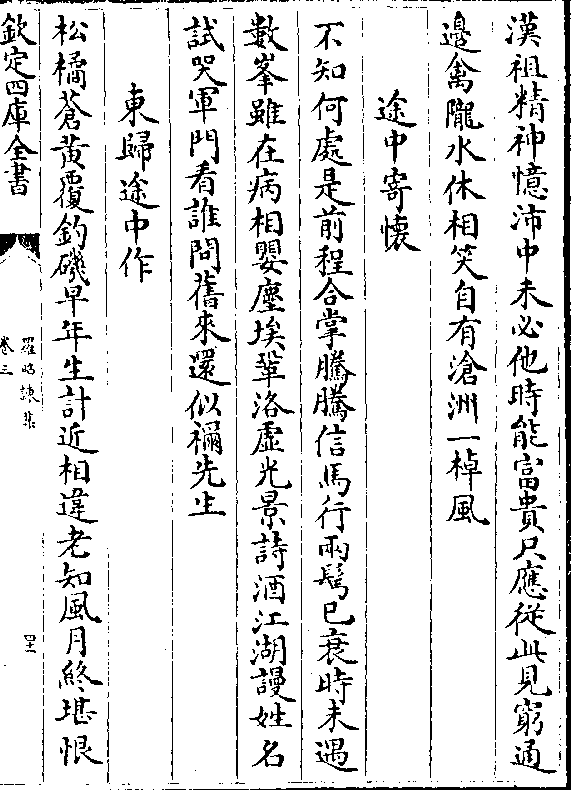 漢祖精神憶沛中未必他時能富貴只應從此見窮通
邊禽隴水休相笑自有滄洲一棹風
途中寄懐
不知何處是前程合掌騰騰信馬行兩鬂已衰時未遇
數峯雖在病相嬰塵埃鞏洛虚光景詩酒江湖謾姓名
試哭軍門看誰問舊來還似禰先生
東歸途中作
松橘蒼黄覆釣磯早年生計近相違老知風月終堪恨
欽定四庫全書
羅昭諫集
卷三
四十三